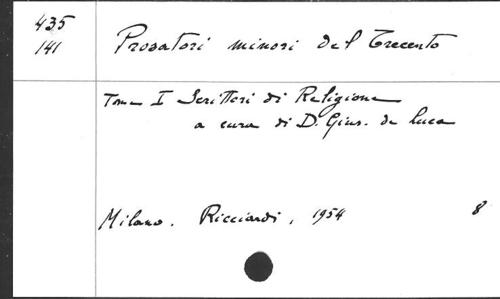 435
141
Prosatori minori del Trecento
Tomo I Scrittori di Religione
a cura di D. Gius. de Luca
Milano. Ricciardi, 1954 8